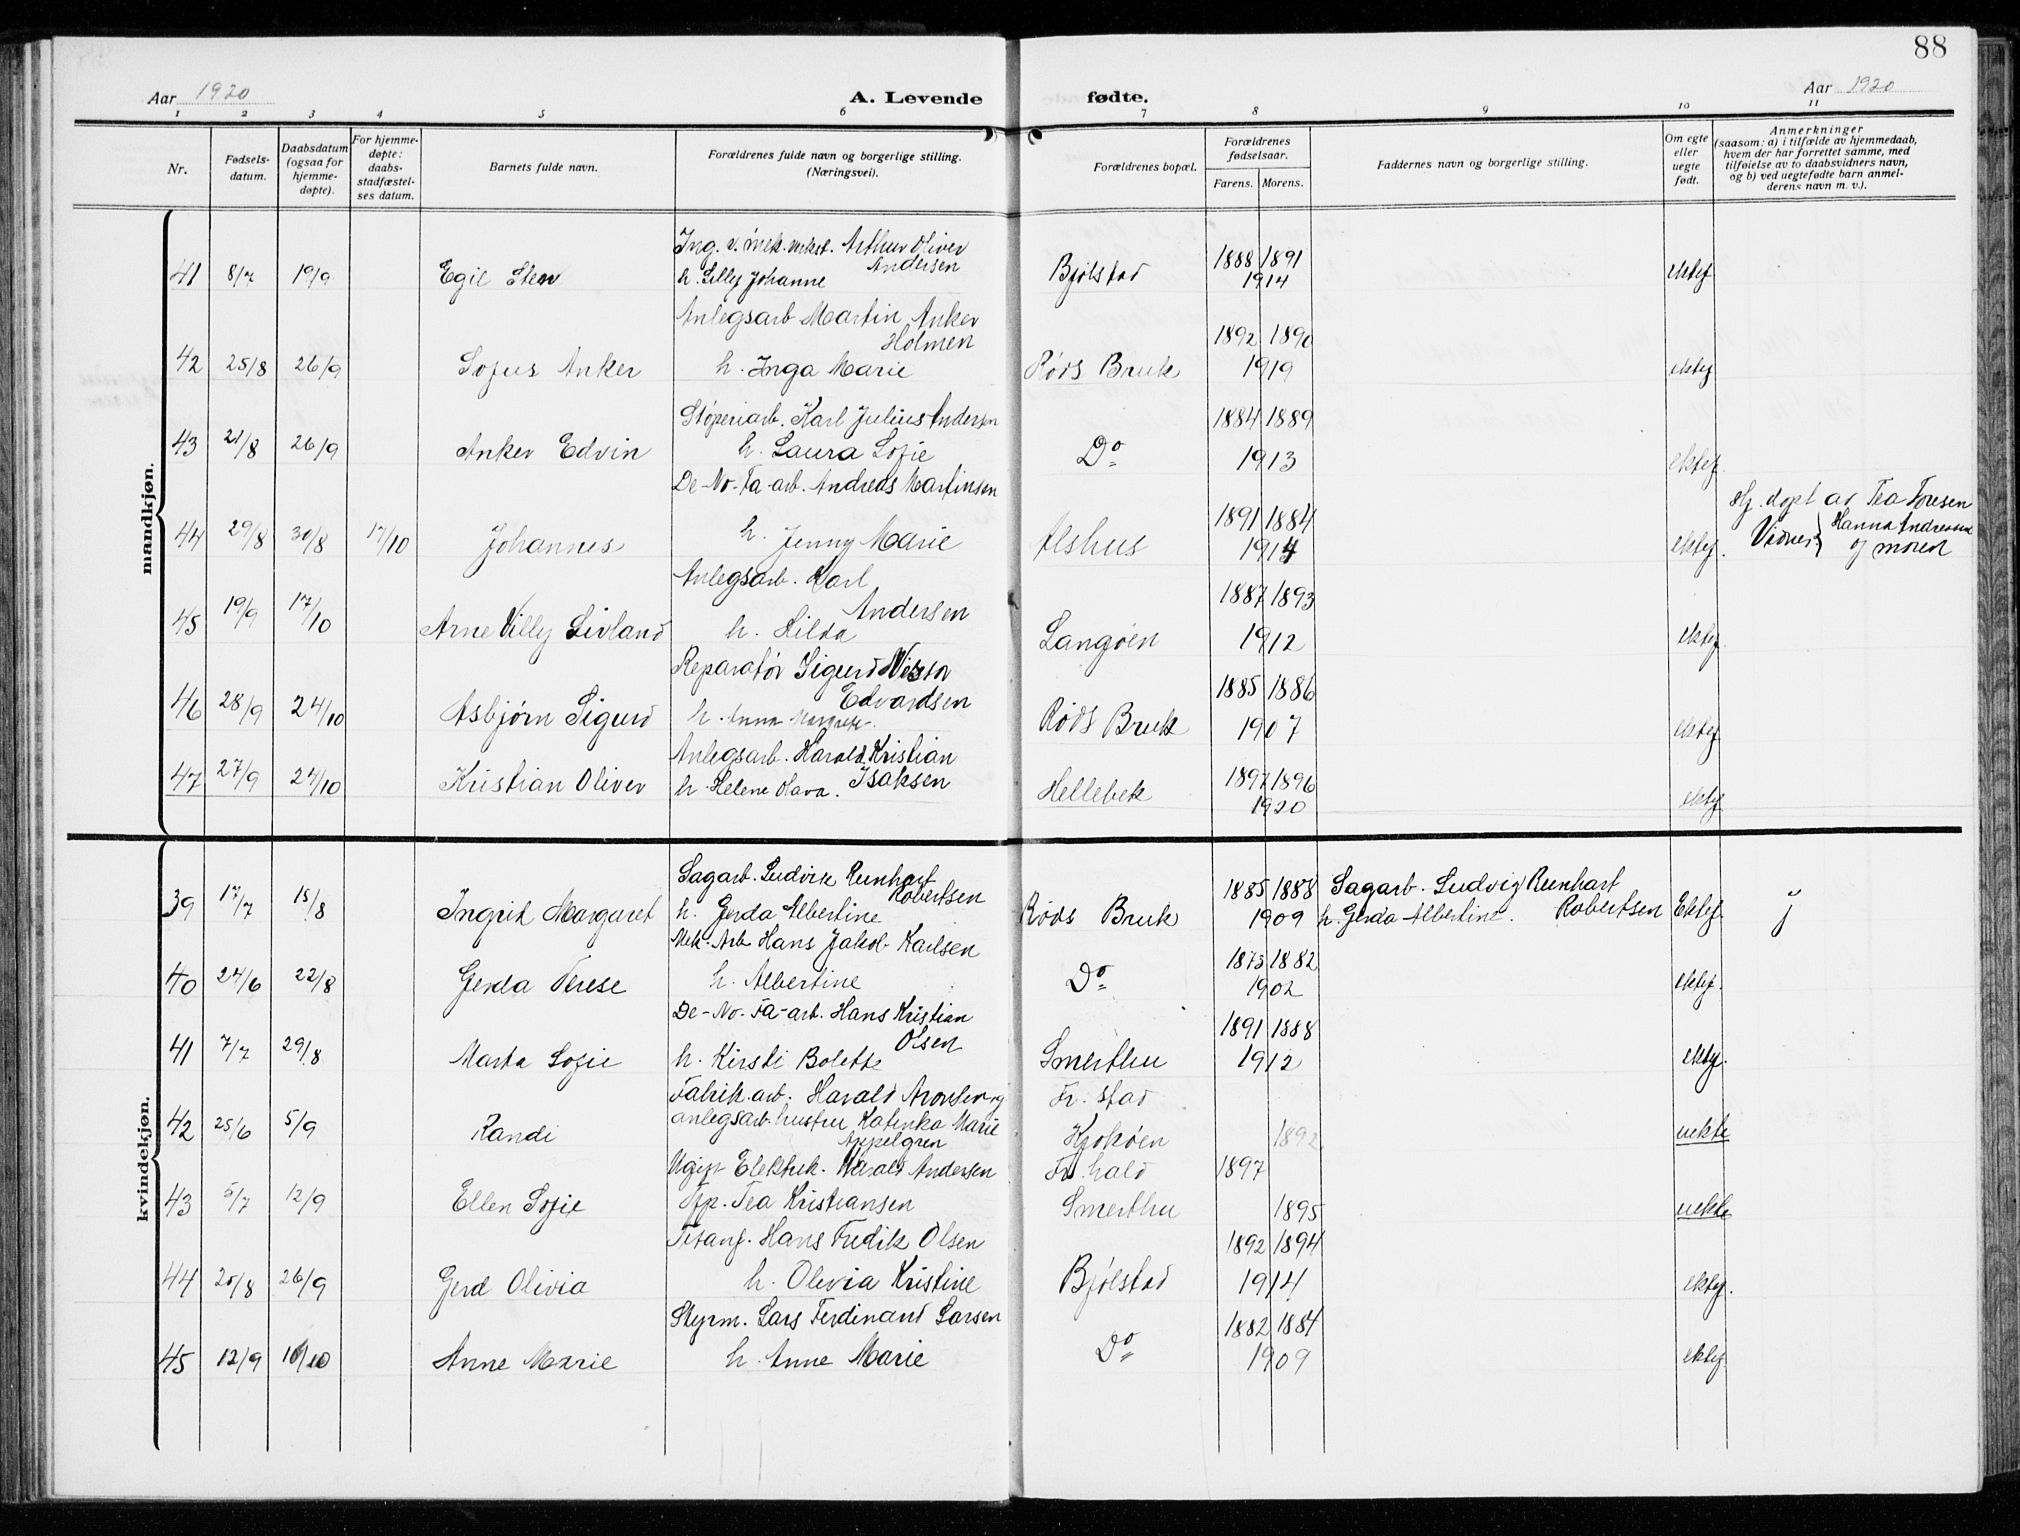 88
Aar 1920
A. Levende fødte.
Aar 1920
1 2 3 4 5 6 7 8 9 10 11
Nr.
Fødsels-
datum.
Daabsdatum
(ogsaa for
hjemme-
døpte).
For hjemme-
døpte:
daabs-
stadfæstel-
ses datum.
Barnets fulde navn.
Forældrenes fulde navn og borgerlige stilling.
(Næringsvei).
Forældrenes bopæl.
Forældrenes
fødselsaar.
Farens. Morens.
Faddernes navn og borgerlige stilling.
Om egte
eller
uegte
født.
Anmerkninger
(saasom: a) i tilfælde av hjemmedaab,
hvem der har forrettet samme, med
tilføielse av to daabsvidners navn,
og b) ved uegtefødte barn anmel-
derens navn m. v.).
mandkjøn.
Ing. v. mek. verkst. Arthur Oliver
Andersen
1888 1891
41 8/7 19/9 Egil Sten h. Lilly Johanne Bjølstad 1914 ektef
Anlegsarb Martin Anker
Holmen
1892 1890
42 25/8 26/9 Sofus Anker h. Inga Marie Røds Bruk 1919 ektef
Støperiarb. Karl Julius Andersen 1884 1889
43 21/8 26/9 Anker Edvin h. Laura Sofie Do 1913 ektef.
De-No-Fa-arb. Andreas Martinsen
1891 1884 Hj. døpt av Tea Foresen
44 29/8 30/8 17/10 Johannes h. Jenny Marie Alshus 1914 ektef. Vidner } Hanna Andresen
og moren
Anlegsarb. Karl
Andersen
1887 1893
45 19/9 17/10 Arne Villy Livland h. Hilda Langøen 1912 ektef.
Reparatør Sigurd
Edvardsen
1885 1886
46 28/9 24/10 Asbjørn Sigurd h. Anna Røds Bruk 1907 ektef
Anlegsarb. Harald Kristian
Isaksen
1897 1896
47 27/9 24/10 Kristian Oliver h. Helene Hellebek 1920 ektef
kvindekjøn.
Sagarb. Ludvik Renhart
Robertsen
1885 1888 Sagarb. Ludvig Renhart
Robertsen
39 17/7 15/8 Ingrid Margaret h. Gerda Albertine Røds Bruk 1909 h. Gerda Albertine. Ektef.
Mek. Arb Hans Jakob Karlsen 1873 1882
40 24/6 22/8 Gerda Terese h. Albertine Do 1902 ektef.
De-No-Fa-arb. Hans Kristian
Olsen
1891 1888
41 7/7 29/8 Marta Sofie h. Kirsti Bolette Smerthu 1912 ektef.
Fabrik.arb. Harald Fr. stad
42 25/6 5/9 Randi anlegsarb. hustru Katinka Marie
Appelgren
Kjøkøen 1892 uekte
Ugift Elektrik. Harald Andersen Fr. hald 1897
43 5/7 12/9 Ellen Sofie Tjp. Tea Kristiansen Smerthu 1895 uekte
Hans Fredik Olsen 1892 1894
44 20/8 26/9 Gerd Olivia h. Olivia Kristine Bjølstad 1914 ektef.
Styrm. Lars Ferdinand Larsen 1882 1884
45 12/9 10/10 Anne Marie h. Anne Marie Do 1909 ektef.